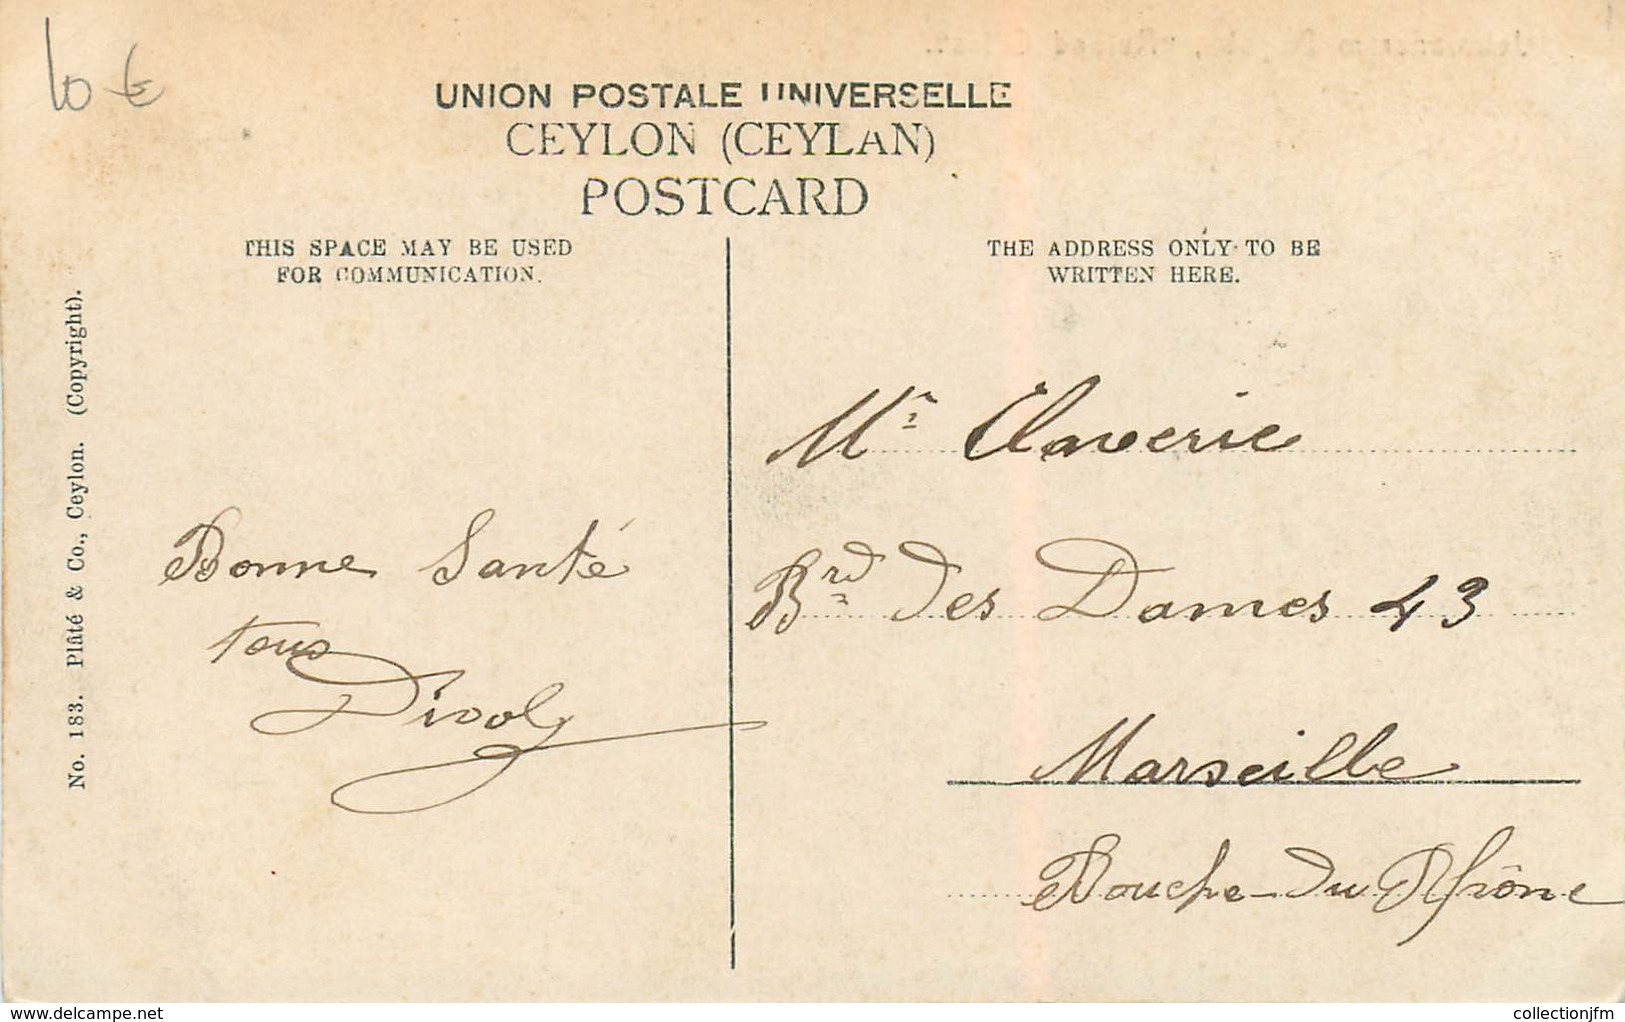 10 €
UNION POSTALE UNIVERSELLE
CEYLON (CEYLAN)
POSTCARD
THIS SPACE MAY BE USED
FOR COMMUNICATION.
THE ADDRESS ONLY TO BE
WRITTEN HERE.
No. 183. Plâté & Co., Ceylon. (Copyright).
Bonne Santé
tous
Divoly
Mr Claverie
Brd des Dames 43
Marseille
Bouche-du Rhône
delcampe.net
collectionjfm